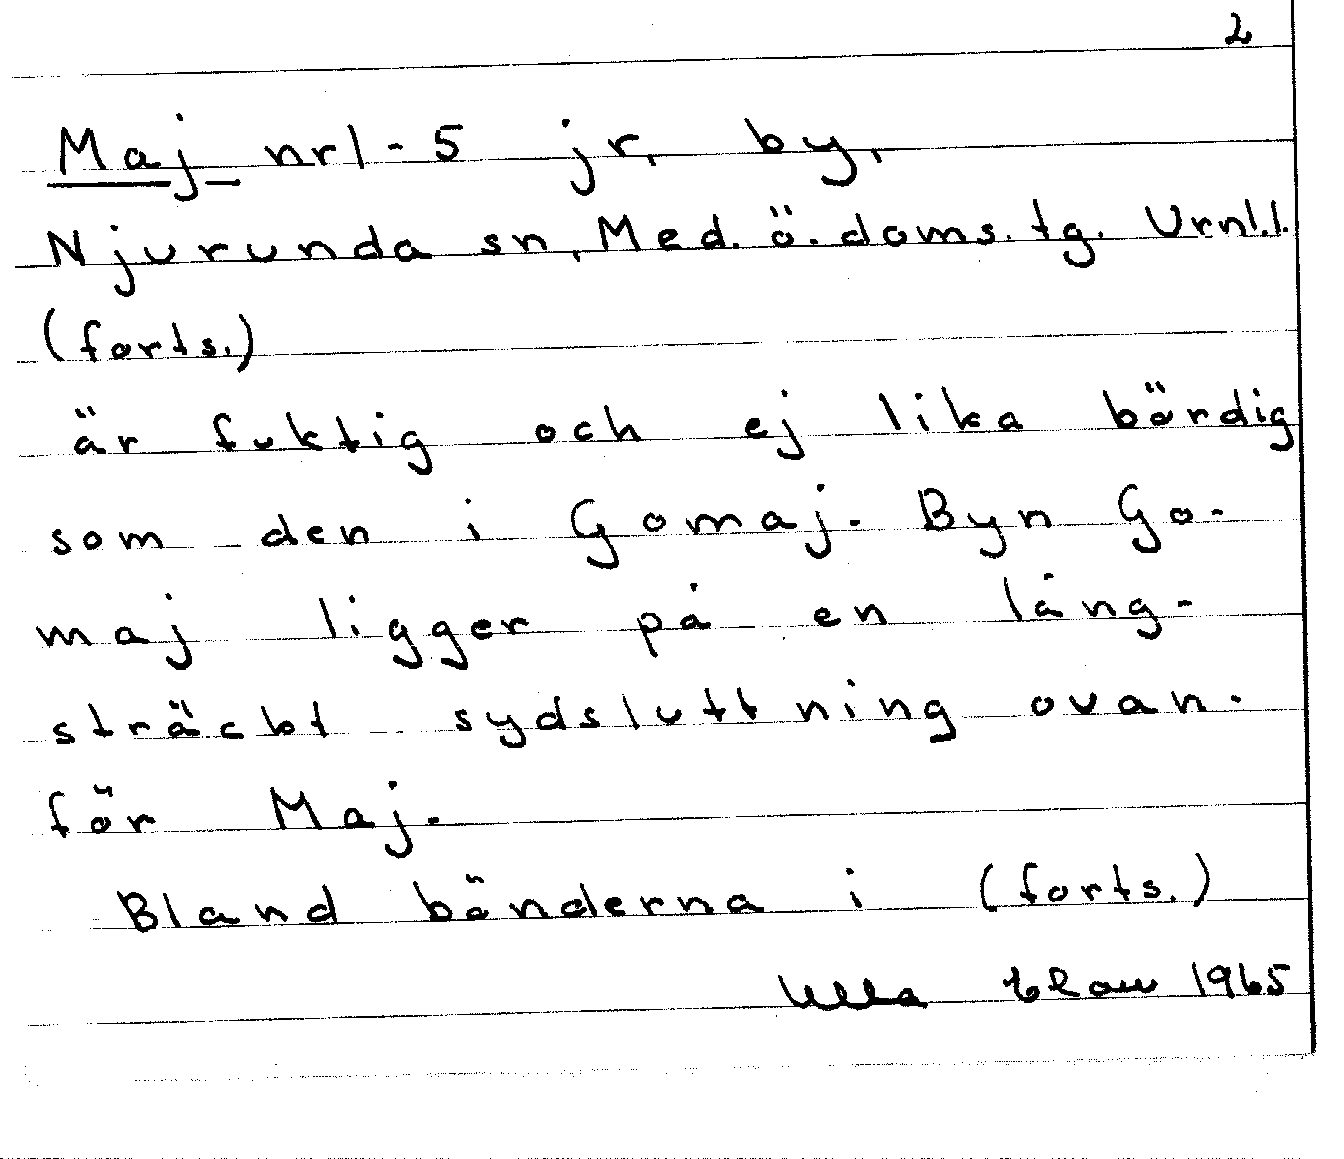 2
Maj nr 1-5 jr. by.
Njurunda sn, Med. ö. doms. tg. Vrnl.l.
(forts.)
är fuktig och ej lika bördig
som den i Gomaj. Byn Go-
maj ligger på en lång-
sträckt sydsluttning ovan-
för Maj.
Bland bönderna i (forts.)
Ulla 1965